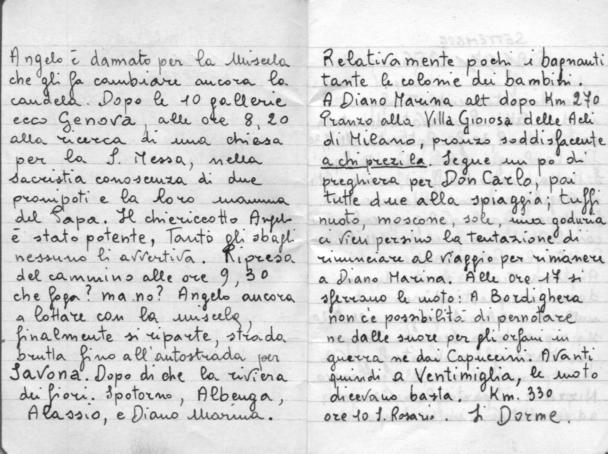 Angelo è dannato per la Miscela
che gli fa cambiare ancora la
candela. Dopo le 10 gallerie
ecco Genova, alle ore 8,20
alla ricerca di una chiesa
per la S. Messa, nella
sacristia conoscenza di due
pronipoti e la loro mamma
del Papa. Il chiericcotto Angelo
è stato potente, Tanto gli sbagli
nessuno li avvertiva. Ripresa
del cammino alle ore 9,30
che foga? ma no? Angelo ancora
a lottare con la miscela,
finalmente si riparte, strada
brutta fino all'autostrada per
Savona. Dopo di che la riviera
dei fiori. Spotorno, Albenga,
Alassio, e Diano Marina.
Relativamente pochi i bagnanti
tante le colonie dei bambini.
A Diano Marina alt dopo Km 270
Pranzo alla Villa Gioiosa delle Acli
di Milano, pranzo soddisfacente
a chi prezi la. Segue un po di
preghiera per Don Carlo, poi
tutte due alla spiaggia; tuffi
nuoto, moscone, sole, una goduria
ci vien persino la tentazione di
rinunciare al viaggio per rimanere
a Diano Marina. Alle ore 17 si
sferrano le moto: A Bordighera
non c'è possibilità di pernotare
ne dalle suore per gli orfani in
guerra ne dai Capuccini. Avanti
quindi a Ventimiglia, le moto
dicevano basta. Km. 330
ore 10 S. Rosario. Si Dorme.